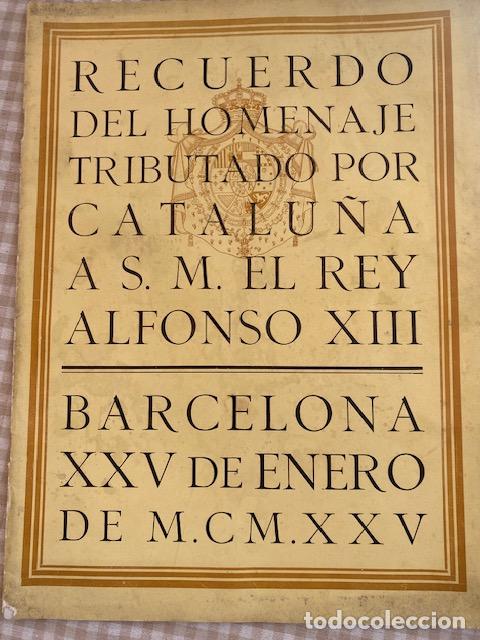 RECUERDO
DEL HOMENAJE
TRIBUTADO POR
CATALUÑA
A S. M. EL REY
ALFONSO XIII
BARCELONA
XXV DE ENERO
DE M.CM.XXV
todocoleccion